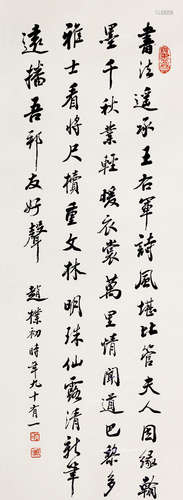 書法遥承王右軍詩風堪比管夫人因緣翰
墨千秋業輕暖衣裳萬里情聞道巴黎多
雅士看將尺牘重文林明珠仙露清新筆
遠播吾邦友好聲
趙樸初時年九十有一